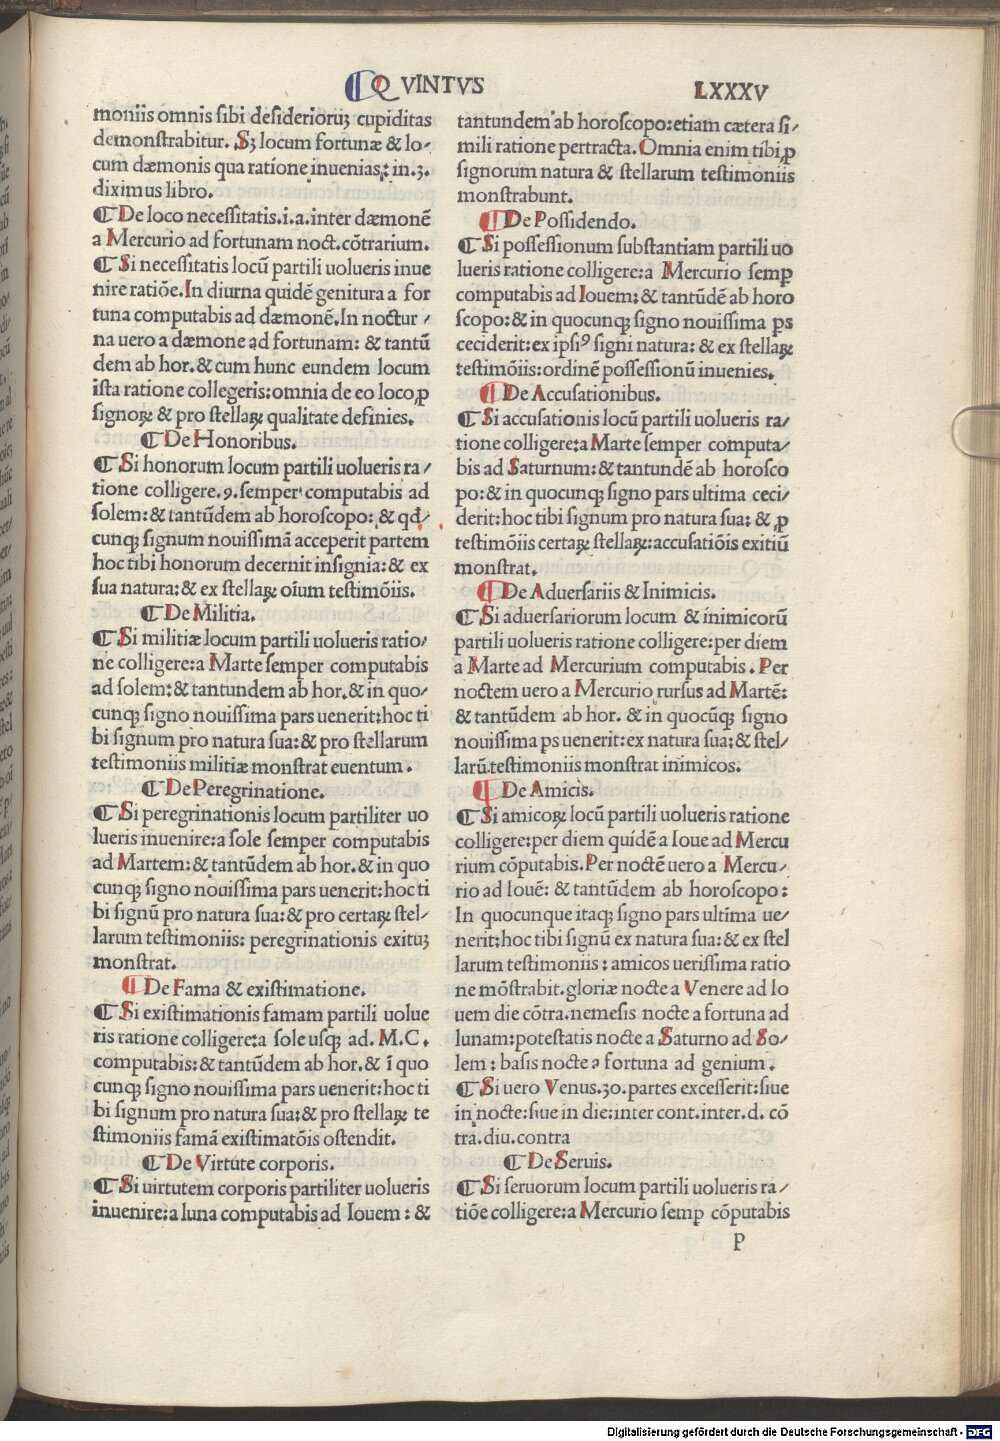 QVINTVS
LXXXV
moniis omnis sibi desideriorꝫ cupiditas
demonstrabitur. Sꝫ locum fortunæ & lo⸗
cum dæmonis qua ratione inuenias: in .3.
diximus libro.
¶ De loco necessitatis.i.a.inter dæmonē
a Mercurio ad fortunam noct.cōtrarium.
¶ Si necessitatis locū partili uolueris inue
nire ratiōe.In diurna quidē genitura a for
tuna computabis ad dæmonē.In noctur⸗
na uero a dæmone ad fortunam: & tantū
dem ab hor.& cum hunc eundem locum
ista ratione collegeris:omnia de eo loco,ꝓ
signoꝝ & pro stellaꝝ qualitate definies.
¶ De Honoribus.
¶ Si honorum locum partili uolueris ra⸗
tione colligere.9.semper computabis ad
solem:& tantūdem ab horoscopo: & qđ⸗
cunqꝫ signum nouissimā acceperit partem
hoc tibi honorum decernit insignia:& ex
sua natura:& ex stellaꝝ oīum testimōiis.
¶ De Militia.
¶ Si militiæ locum partili uolueris ratio⸗
ne colligere:a Marte semper computabis
ad solem:& tantundem ab hor.& in quo⸗
cunqꝫ signo nouissima pars uenerit:hoc ti
bi signum pro natura sua:& pro stellarum
testimoniis militiæ monstrat euentum.
¶ De Peregrinatione.
¶ Si peregrinationis locum partiliter uo
lueris inuenire:a sole semper computabis
ad Martem:& tantūdem ab hor.& in quo
cunqꝫ signo nouissima pars uenerit:hoc ti
bi signū pro natura sua:& pro certaꝝ stel⸗
larum testimoniis: peregrinationis exituꝫ
monstrat.
¶ De Fama & existimatione.
¶ Si existimationis famam partili uolue
ris ratione colligere:a sole usqꝫ ad. M.C.
computabis:& tantūdem ab hor.& ī quo
cunqꝫ signo nouissima pars uenerit:hoc ti
bi signum pro natura sua:& pro stellaꝝ te
stimoniis famā existimatōis ostendit.
¶ De Virtute corporis.
¶ Si uirtutem corporis partiliter uolueris
inuenire:a luna computabis ad Iouem: &
tantundem ab horoscopo:etiam cætera si⸗
mili ratione pertracta.Omnia enim tibi,ꝓ
signorum natura & stellarum testimoniis
monstrabunt.
¶ De Possidendo.
¶ Si possessionum substantiam partili uo
lueris ratione colligere:a Mercurio semꝑ
computabis ad Iouem:& tantūdē ab horo
scopo:& in quocunqꝫ signo nouissima ps
ceciderit:ex ipsiꝰ signi natura: & ex stellaꝝ
testimōiis:ordinē possessionū inuenies.
¶ De Accusationibus.
¶ Si accusationis locū partili uolueris ra⸗
tione colligere:a Marte semper computa⸗
bis ad Saturnum:& tantundē ab horosco
po:& in quocunqꝫ signo pars ultima ceci⸗
derit:hoc tibi signum pro natura sua: & ꝓ
testimōiis certaꝝ stellaꝝ:accusatiōis exitiū
monstrat.
¶ De Aduersariis & Inimicis.
¶ Si aduersariorum locum & inimicorū
partili uolueris ratione colligere:per diem
a Marte ad Mercurium computabis. Per
noctem uero a Mercurio rursus ad Martē:
& tantūdem ab hor. & in quocūqꝫ signo
nouissima ps uenerit:ex natura sua:& stel⸗
larū.testimoniis monstrat inimicos.
¶ De Amicis.
¶ Si amicoꝝ locū partili uolueris ratione
colligere:per diem quidē a Ioue ad Mercu
rium cōputabis.Per noctē uero a Mercu⸗
rio ad Iouē: & tantūdem ab horoscopo:
In quocunque itaqꝫ signo pars ultima ue⸗
nerit:hoc tibi signū ex natura sua:& ex stel
larum testimoniis: amicos uerissima ratio
ne mōstrabit.gloriæ nocte a Venere ad Io
uem die cōtra.nemesis nocte a fortuna ad
lunam:potestatis nocte a Saturno ad So⸗
lem: basis nocte a fortuna ad genium.
¶ Si uero Venus.30.partes excesserit:siue
in nocte:siue in die:inter cont.inter.d. cō
tra.diu.contra
¶ De Seruis.
¶ Si seruorum locum partili uolueris ra⸗
tiōe colligere:a Mercurio semꝑ cōputabis
P
Digitalisierung gefördert durch die Deutsche Forschungsgemeinschaft - DFG